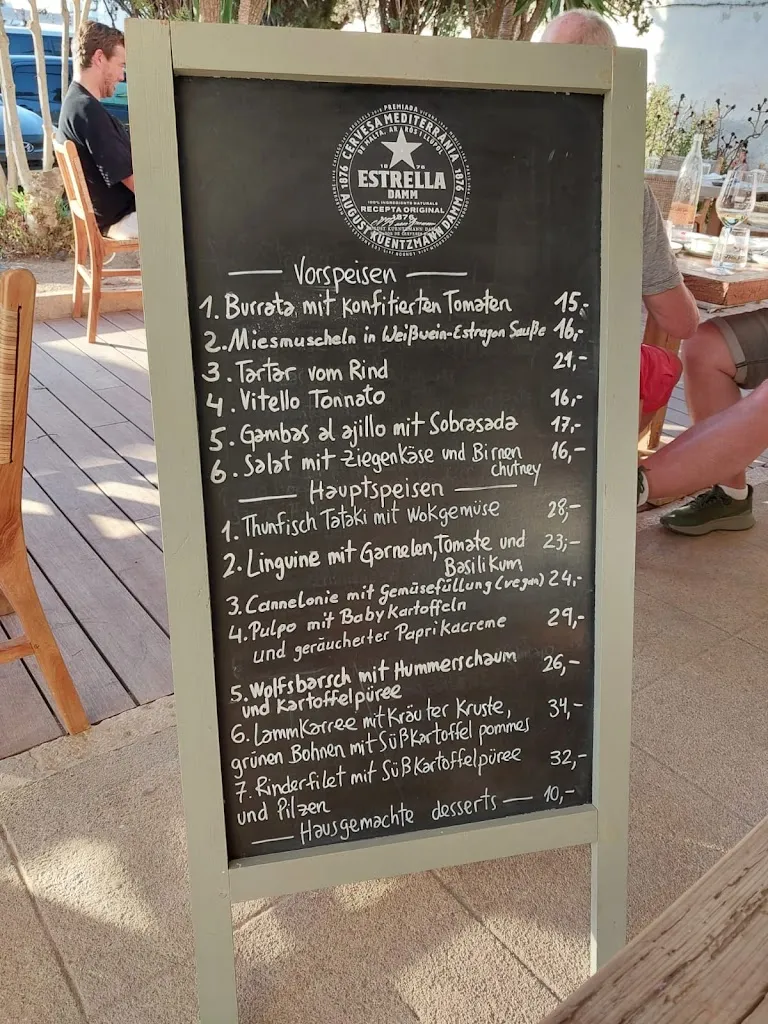 PREMIADA
CERVESA MEDITERRÀNIA
DE MALTA, ARRÒS I LLÚPOL
1876
1876
1876
ESTRELLA
DAMM
100% INGREDIENTS NATURALS
RECEPTA ORIGINAL
1876
AUGUST KUENTZMANN DAMM
Vorspeisen
1. Burrata mit konfitierten Tomaten 15,-
2. Miesmuscheln in Weißwein-Estragon Sauße 16,-
3. Tartar vom Rind 21,-
4. Vitello Tonnato 16,-
5. Gambas al ajillo mit Sobrasada 17,-
6. Salat mit Ziegenkäse und Birnen 16,-
chutney
Hauptspeisen
1. Thunfisch Tataki mit Wokgemüse 28,-
2. Linguine mit Garnelen, Tomate und 23,-
Basilikum
3. Cannelonie mit Gemüsefüllung (vegan) 24,-
4. Pulpo mit Baby Kartoffeln 29,-
und geräucherter Paprikacreme
5. Wolfsbarsch mit Hummerschaum 26,-
und Kartoffelpüree
6. Lammkarree mit Kräuter Kruste, 34,-
grünen Bohnen mit Süßkartoffel pommes
7. Rinderfilet mit Süßkartoffelpüree 32,-
und Pilzen
Hausgemachte desserts 10,-